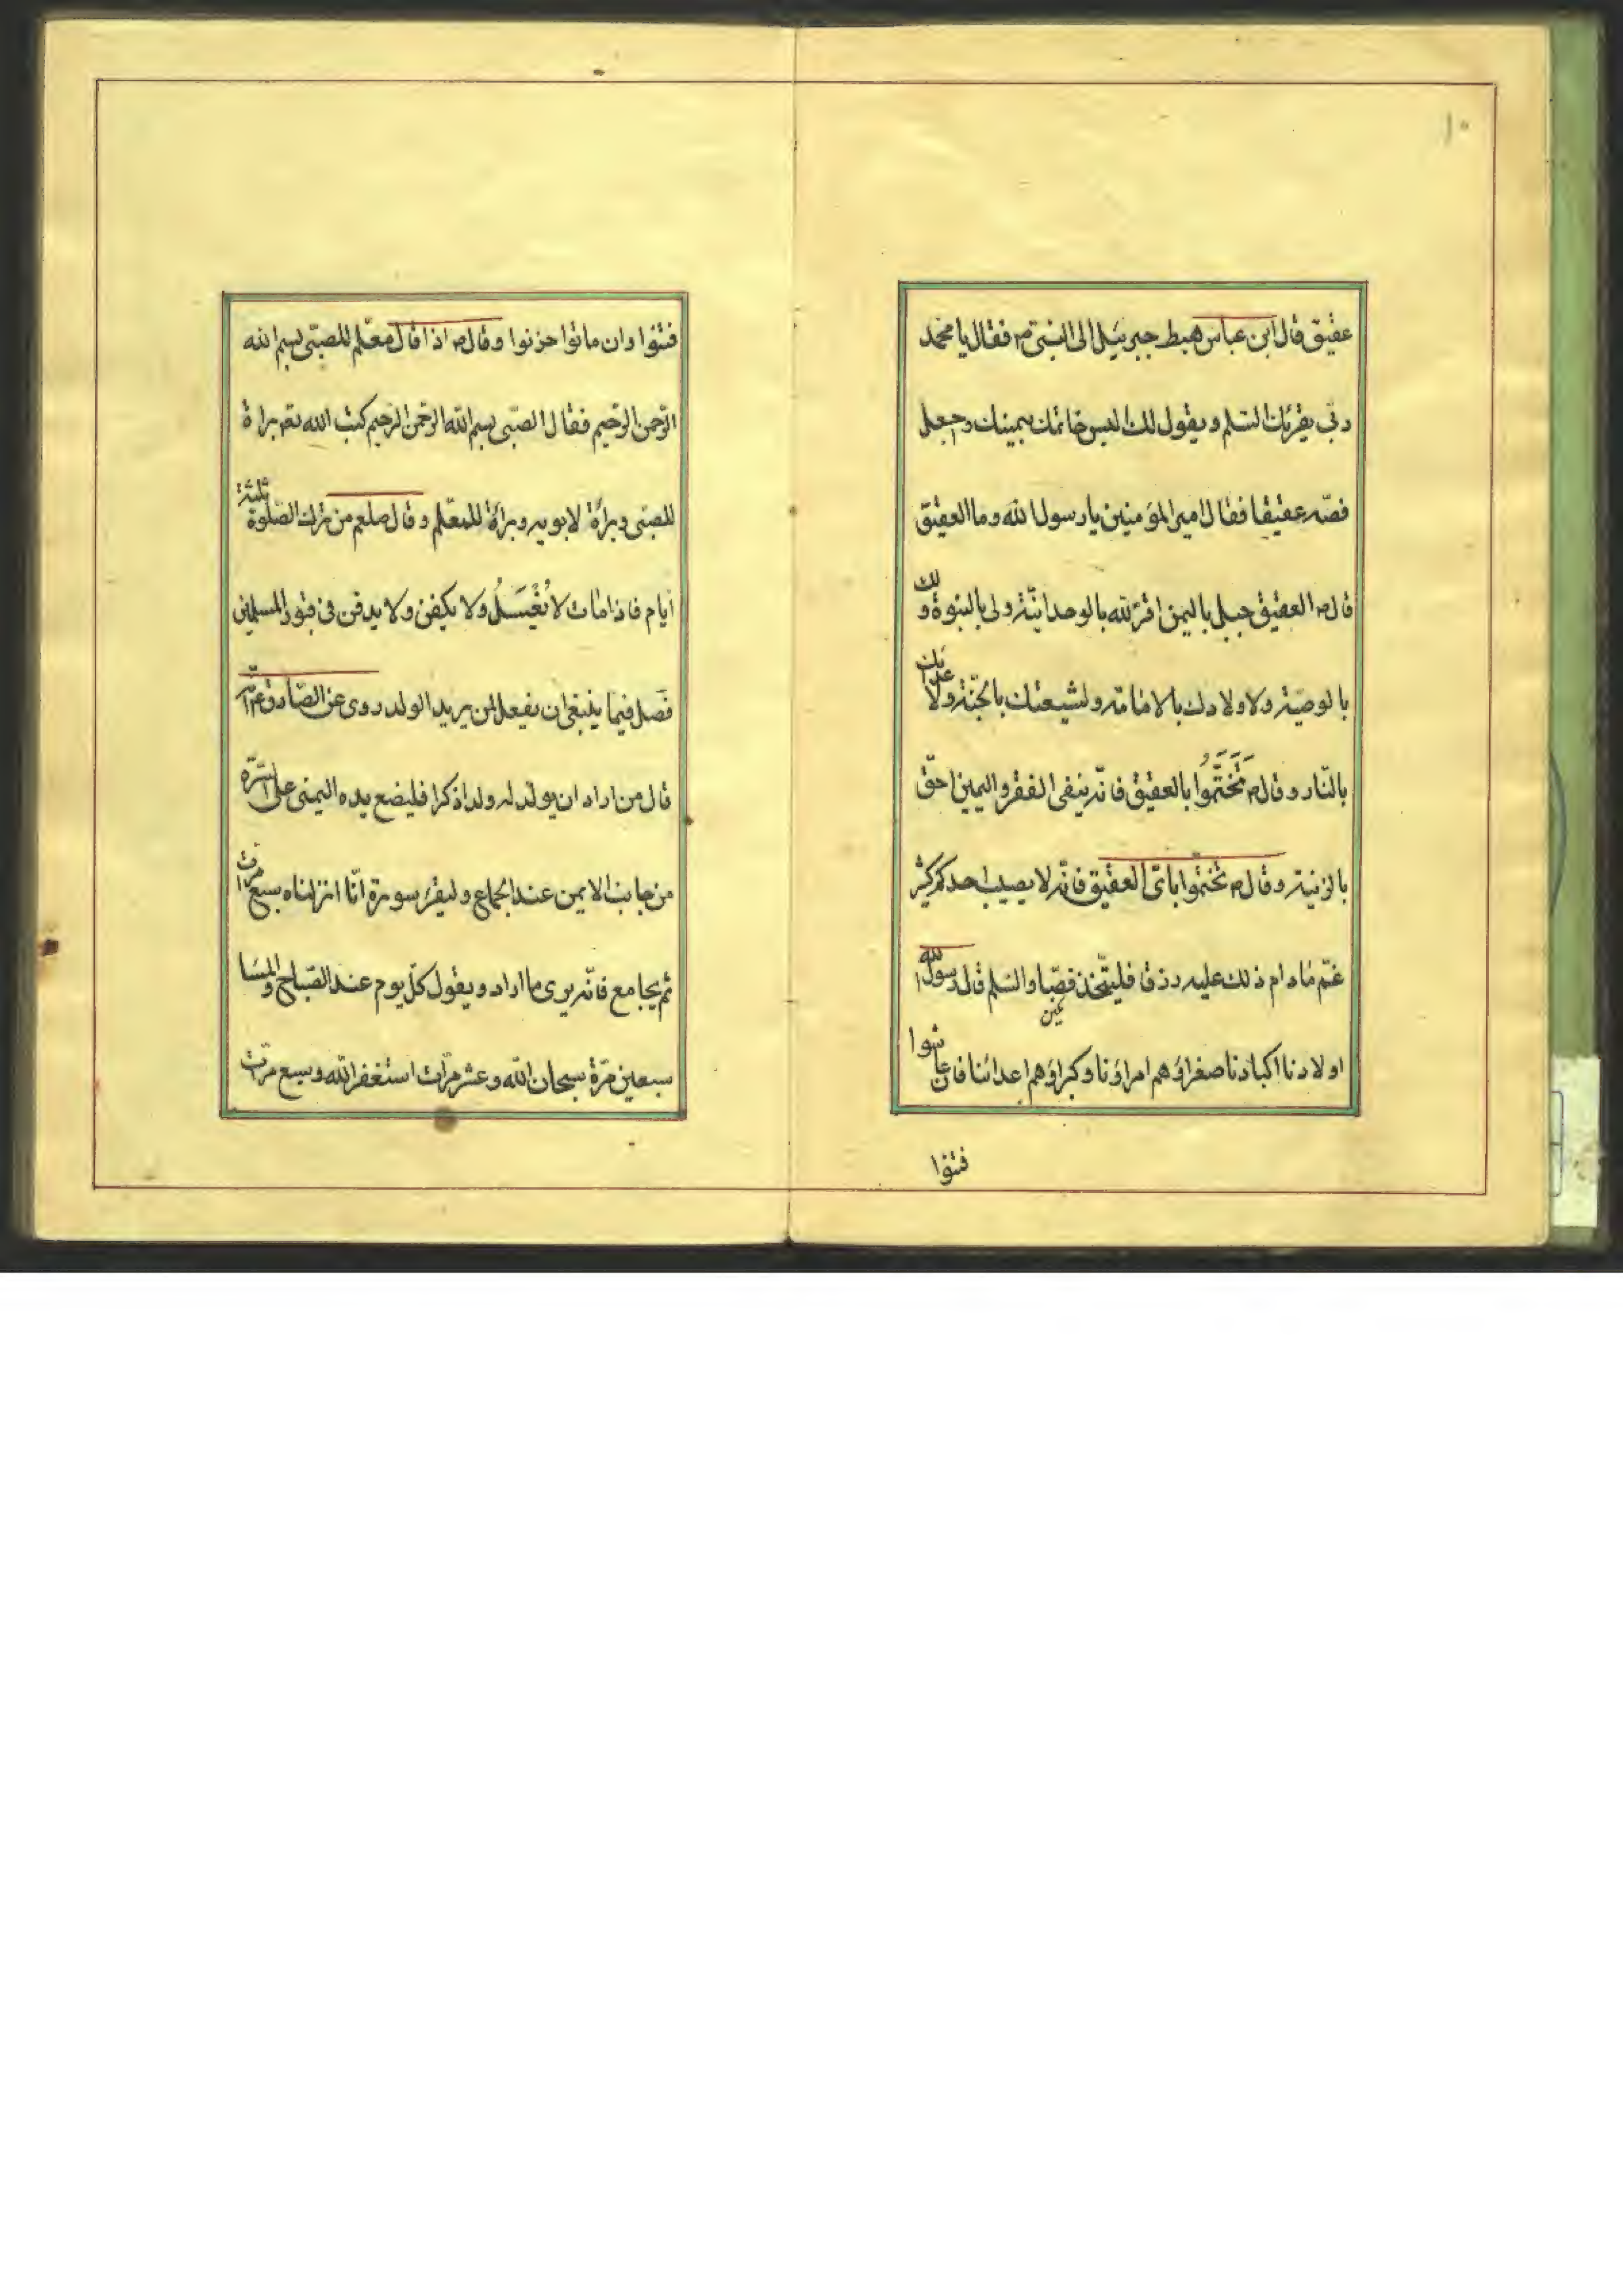 ١٠
عقيق قال ابن عباس هبط جبرئيل الى النبى ص فقال يا محمد
ربّى يقرئك السّلم ويقول لك البس خاتمك بيمينك واجعل
فصّه عقيقا فقال امير المؤمنين يا رسول الله وما العقيق
قال ص العقيق جبل باليمن اقرّ لله بالوحدانيّة ولى بالنبوة و لك
بالوصيّة ولاولادك بالامامة ولشيعتك بالجنّة ولاعدائك
بالنّار وقال ص تَخَتَّمُوا بالعقيق فانّه ينفى الفقر واليمين احقّ
بالزينة وقال ص تختّموا باىّ العقيق فانّه لا يصيب احدكم كثير
غمّ مادام ذلك عليه رزقا فليتّخذ فصّا والسّلم قال رسول الله
اولادنا اكبادنا صغراؤهم امراؤنا وكبراؤهم اعدائنا فان عاشوا
فتنوا
فتنوا وان ماتوا حزنوا وقال ص اذا قال معلّم للصبّى بسم الله
الرّحمن الرّحيم فقال الصّبى بسم الله الرّحمن الرّحيم كتب الله تعم براة
للصبى وبراءة لابويه وبراءة للمعلّم وقال صلعم من ترك الصّلوة ثلثة
ايام فاذا مات لا تُغْسَلُ ولا يكفن ولا يدفن فى قبور المسلمين
فصل فيما ينبغى ان يفعل لمن يريد الولد روى عن الصّادق ع انّه
قال من اراد ان يولد له ولدا ذكرا فليضع يده اليمنى على السّرّة
من جانب الايمن عند الجماع وليقرء سورة انّا انزلناه سبع مرات
ثم يجامع فانّه يرى ما اراد ويقول كلّ يوم عند الصّباح والمسا
سبعين مرّة سبحان الله وعشر مرّات استغفر الله وسبع مرّات